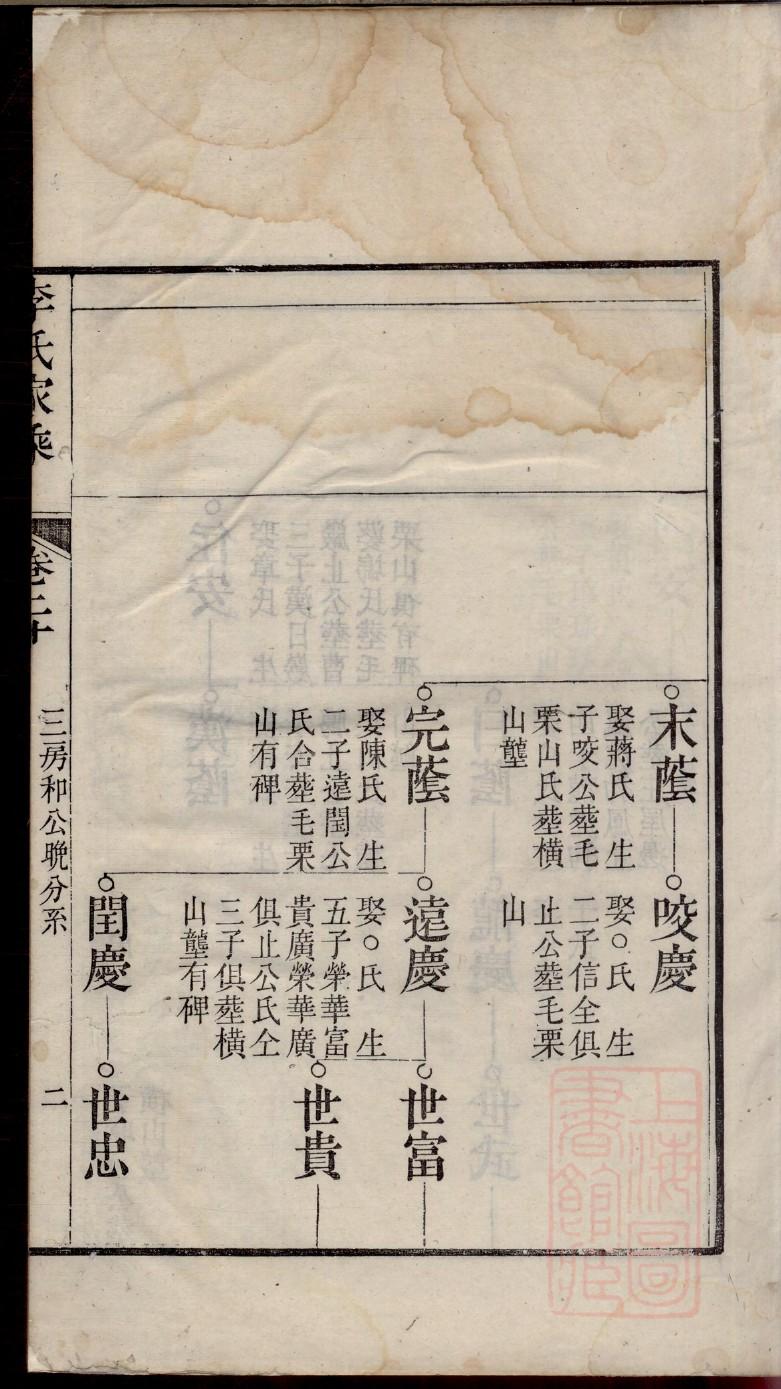 末蔭
娶蔣氏 生
子咬公塟毛
栗山氏塟橫
山壟
咬慶
娶○氏 生
二子信全俱
止公塟毛栗
山
完蔭
娶陳氏 生
二子遠閏公
氏合塟毛栗
山有碑
遠慶
娶○氏 生
五子榮華富
貴廣榮華廣
俱止公氏仝
三子俱塟橫
山壟有碑
世富
世貴
閏慶
世忠
李氏家乘
卷二十
三房和公晚分系
二
上海圖
書館藏